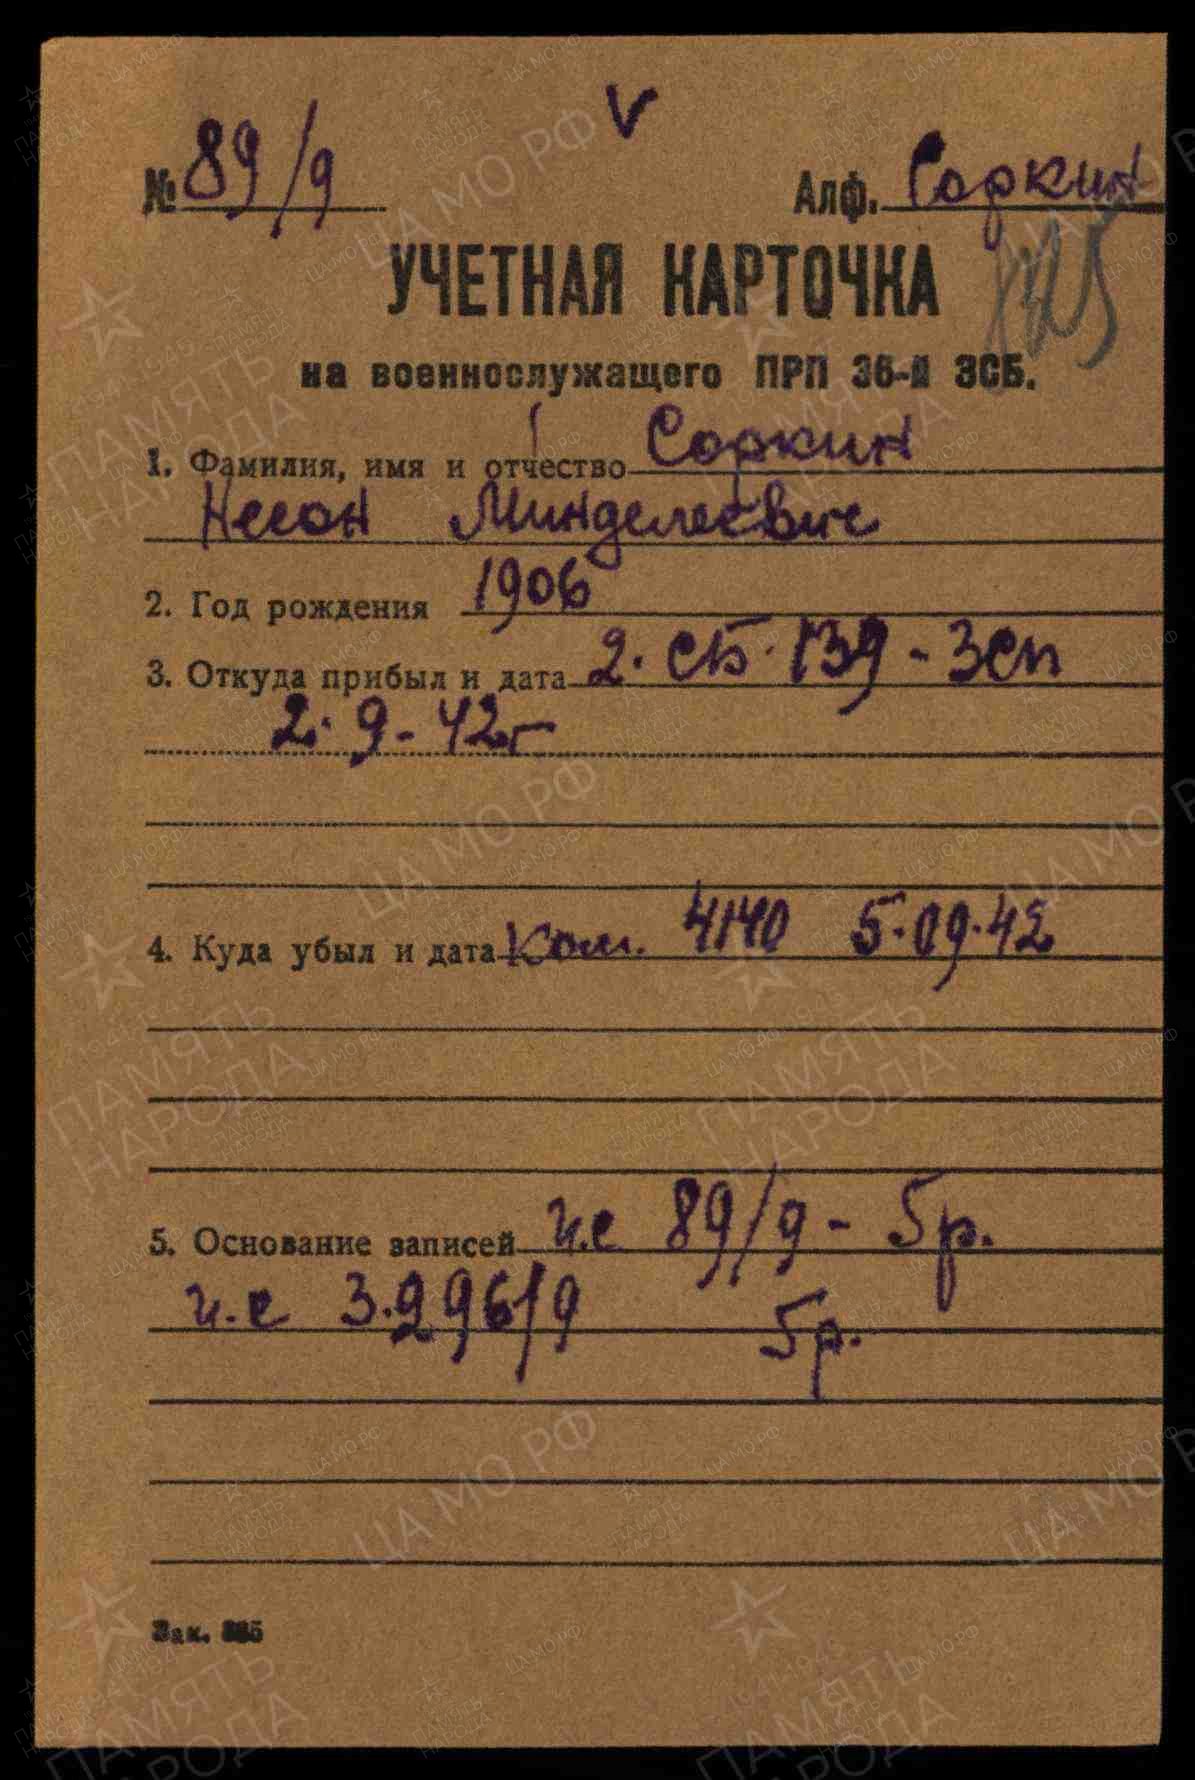 № 89/9 Алф. Соркин
УЧЕТНАЯ КАРТОЧКА
на военнослужащего ПРП 36-й ЗСБ.
1. Фамилия, имя и отчество Соркин
Несон Минделеевич
2. Год рождения 1906
3. Откуда прибыл и дата 2. СБ. 139 - Зсп
2. 9 - 42 г
4. Куда убыл и дата Ком. 4140 5.09.42
5. Основание записей и.с 89/9 - 5 р.
и.с 3.9 96/9 5 р.
Зак.
ЦА МО РФ
ПАМЯТЬ НАРОДА
1941-1945